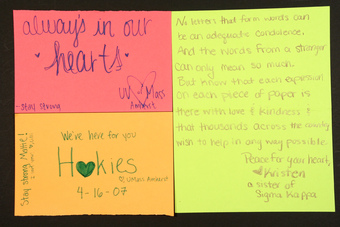 always in our
hearts
- Stay strong
U Mass
Amherst
Stay strong Mattie!
We're here for you
Hokies
UMass Amherst
4-16-07
No letters that form words can
be an adequate condolence.
And the words from a stranger
can only mean so much.
But know that each expression
on each piece of paper is
there with love & kindness &
that thousands across the country
wish to help in any way possible.
Peace for your heart,
Kristen
a sister of
Sigma Kappa